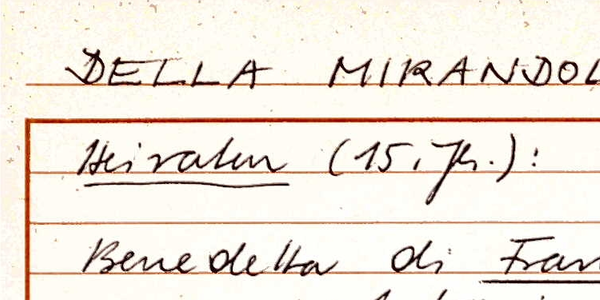 DELLA MIRANDOL
Heiraten (15. Jh.):
Benedetta di Fran